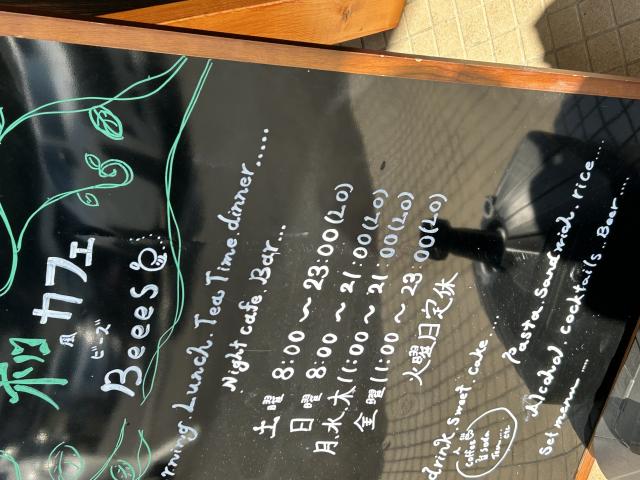 和風カフェ
ビーズ
Beees
rning. Lunch. Tea Time. dinner.....
Night cafe. Bar...
土曜 8:00 ~ 23:00(L.O)
日曜 8:00 ~ 21:00(L.O)
月.水.木 11:00 ~ 21:00(L.O)
金曜 11:00 ~ 23:00(L.O)
火曜日定休
drink. sweet. cake....
Coffee
Soda
etc
Pasta. sandwich. rice...
Alcohol. cocktails. Beer....
Set menu ....